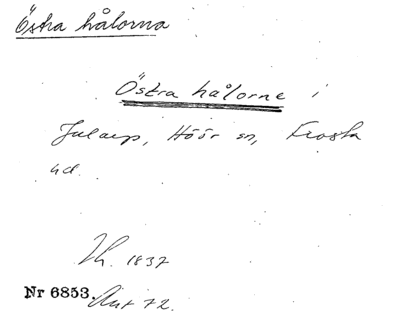 Östra hålorna
Östra hålorne i
Jularp, Höör sn, Frosta
hd.
Th. 1837
Nr 6853. Aut 72.